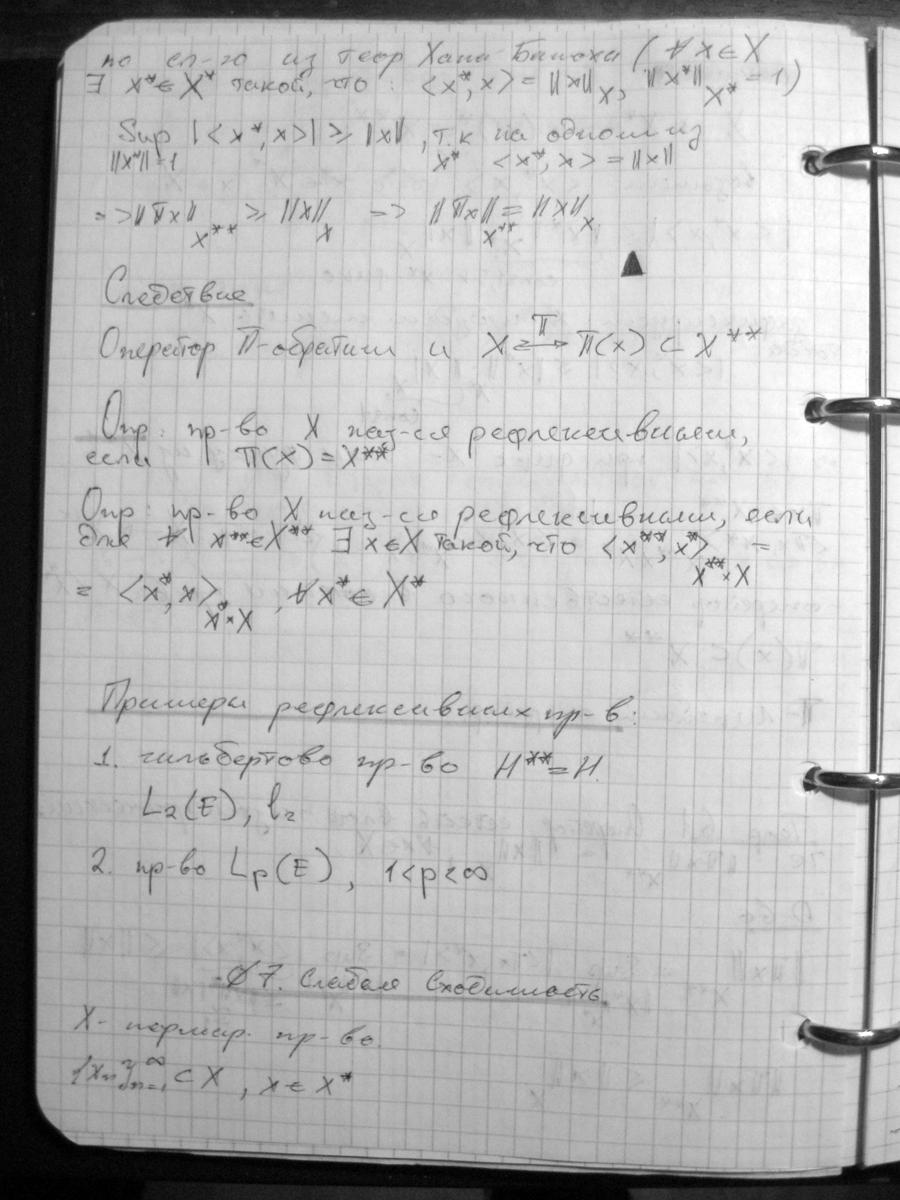 по сл-ю из теор Хана-Банаха ( ∀ x ∈ X
∃ x* ∈ X* такой, что : <x*, x> = ||x||_X, ||x*||_X* = 1)
Sup |<x*, x>| ≥ ||x|| , т.к на одном из
||x*||=1 x* <x*, x> = ||x||
=> ||πx||_X** ≥ ||x||_X => ||πx||_X** = ||x||_X
▲
Следствие
Оператор π-обратим и X ⇄^π π(x) ⊂ X**
Опр: пр-во X наз-ся рефлексивным,
если π(X) = X**
Опр: пр-во X наз-ся рефлексивным, если
для ∀ x** ∈ X** ∃ x ∈ X такой, что <x**, x*>_X**×X =
= <x*, x>_X*×X , ∀ x* ∈ X*
Примеры рефлексивных пр-в:
1. гильбертово пр-во H** = H.
L₂(E), l₂
2. пр-во Lp(E) , 1<p<∞
§7. Слабая сходимость.
X- нормир. пр-во.
{xₙ}_{n=1}^∞ ⊂ X , x ∈ X*